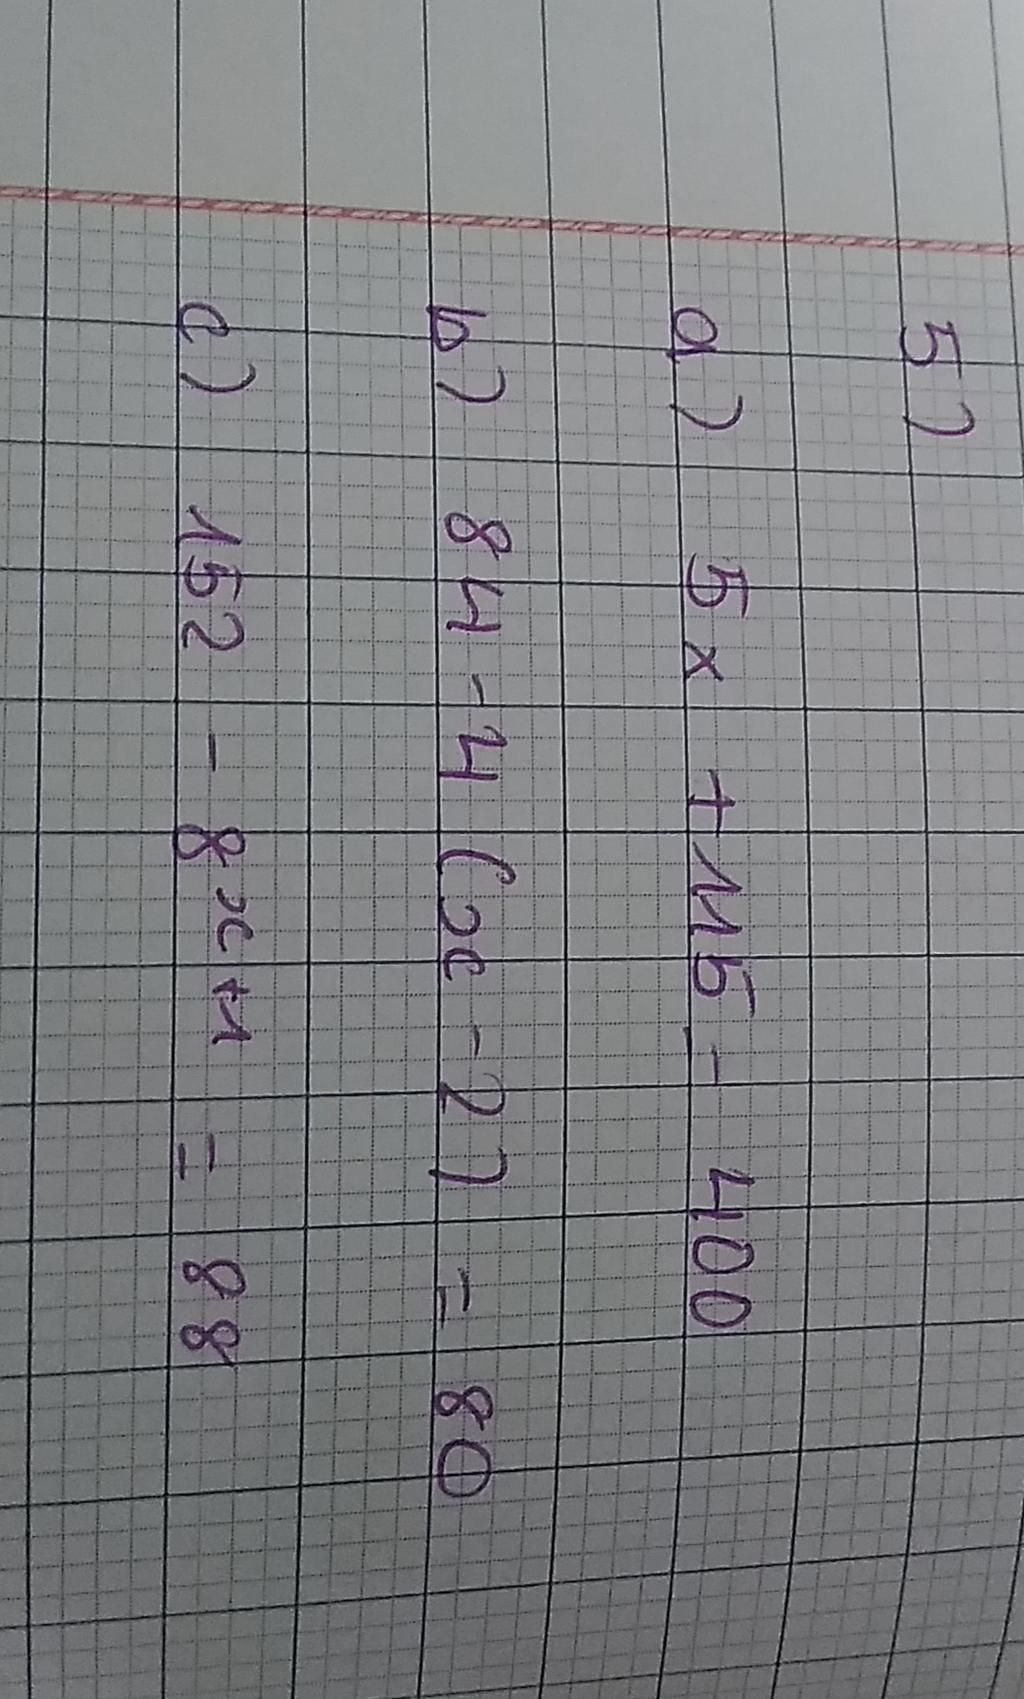 5)
a) 5x + 115 = 400
b) 84 - 4 (x - 2) = 80
c) 152 - 8x + 1 = 88